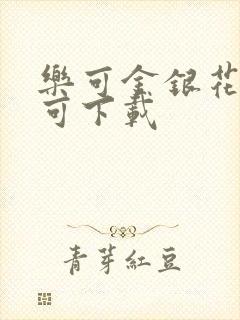 樂可金銀花
可下載
青芽紅豆